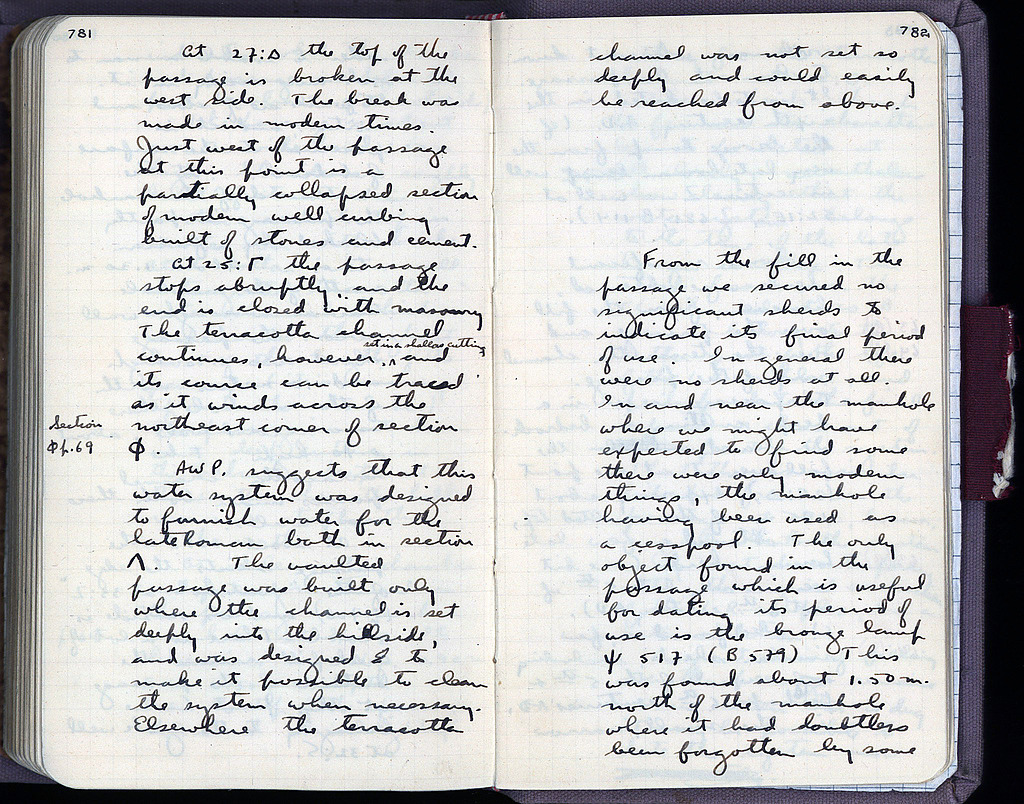 781
At 27:Δ the top of the
passage is broken at the
west side. The break was
made in modern times.
Just west of the passage
at this point is a
partially collapsed section
of modern well curbing
built of stones and cement.
At 25:Γ the passage
stops abruptly, and the
end is closed with masonry
The terracotta channel
set in a shallow cutting
continues, however, and
its course can be traced
as it winds across the
northeast corner of section
Φ.
Section
Φ p.69
AWP. suggests that this
water system was designed
to furnish water for the
late Roman bath in section
Λ. The vaulted
passage was built only
where the channel is set
deeply into the hillside,
and was designed to
make it possible to clean
the system when necessary.
Elsewhere the terracotta
782
channel was not set so
deeply and could easily
be reached from above.
From the fill in the
passage we secured no
significant sherds to
indicate its final period
of use. In general there
were no sherds at all.
In and near the manhole
where we might have
expected to find some
there were only modern
things, the manhole
having been used as
a cesspool. The only
object found in the
passage which is useful
for dating its period of
use is the bronze lamp
Ψ 517 (B 579) This
was found about 1.50 m.
north of the manhole
where it had doubtless
been forgotten by some